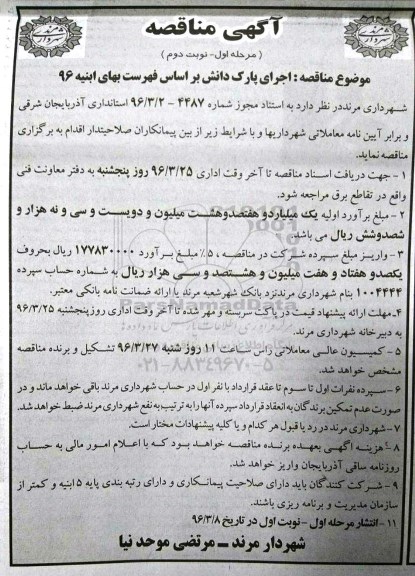 آگهی مناقصه
( مرحله اول- نوبت دوم )
موضوع مناقصه : اجرای پارک دانش بر اساس فهرست بهای ابنیه ۹۶
شهرداری مرند در نظر دارد به استناد مجوز شماره ۴۴۸۷ - ۹۶/۳/۲ استانداری آذربایجان شرقی
و برابر آیین نامه معاملاتی شهرداریها و با شرایط زیر از بین پیمانکاران صلاحیتدار اقدام به برگزاری
مناقصه نماید.
۱ - جهت دریافت اسناد مناقصه تا آخر وقت اداری ۹۶/۳/۲۵ روز پنجشنبه به دفتر معاونت فنی
واقع در تقاطع برق مراجعه شود.
۲ - مبلغ برآورد اولیه یک میلیارد و هفتصد و هشت میلیون و دویست و سی و نه هزار و
شصد و شش ریال می باشد.
۳ - واریز مبلغ سپرده شرکت در مناقصه ، ۵٪ مبلغ برآورد ۱۷۷۸۳۰۰۰۰ ریال بحروف
یکصد و هفتاد و هفت میلیون و هشتصد و سی هزار ریال به شماره حساب سپرده
۱۰۰۴۴۴۴ بنام شهرداری مرند نزد بانک شهر شعبه مرند یا ارائه ضمانت نامه بانکی معتبر.
۴ـ مهلت ارائه پیشنهاد قیمت در پاکت سربسته و مهر شده تا آخر وقت اداری روز پنجشنبه ۹۶/۳/۲۵
به دبیرخانه شهرداری مرند.
۵ - کمیسیون عالی معاملاتی راس ساعت ۱۱ روز شنبه ۹۶/۳/۲۷ تشکیل و برنده مناقصه
مشخص خواهد شد.
۶ - سپرده نفرات اول تا سوم تا عقد قرارداد با نفر اول در حساب شهرداری مرند باقی خواهد ماند و در
صورت عدم تمکین برندگان به انعقاد قرارداد سپرده آنها را به ترتیب به نفع شهرداری مرند ضبط خواهد شد.
۷ - شهرداری مرند در رد یا قبول هر کدام و یا کلیه پیشنهادات مختار است.
۸ - هزینه آگهی بعهده برنده مناقصه خواهد بود که با اعلام امور مالی به حساب
روزنامه ساقی آذربایجان واریز خواهد شد.
۹ - شرکت کنندگان باید دارای صلاحیت پیمانکاری و دارای رتبه بندی پایه ۵ ابنیه و کمتر از
سازمان مدیریت و برنامه ریزی باشند.
۱۱ - انتشار مرحله اول - نوبت اول در تاریخ ۹۶/۳/۸
شهردار مرند ـ مرتضی موحد نیا
ParsNamadData
۰۲۱-۸۸۳۴۹۶۷۰-۵